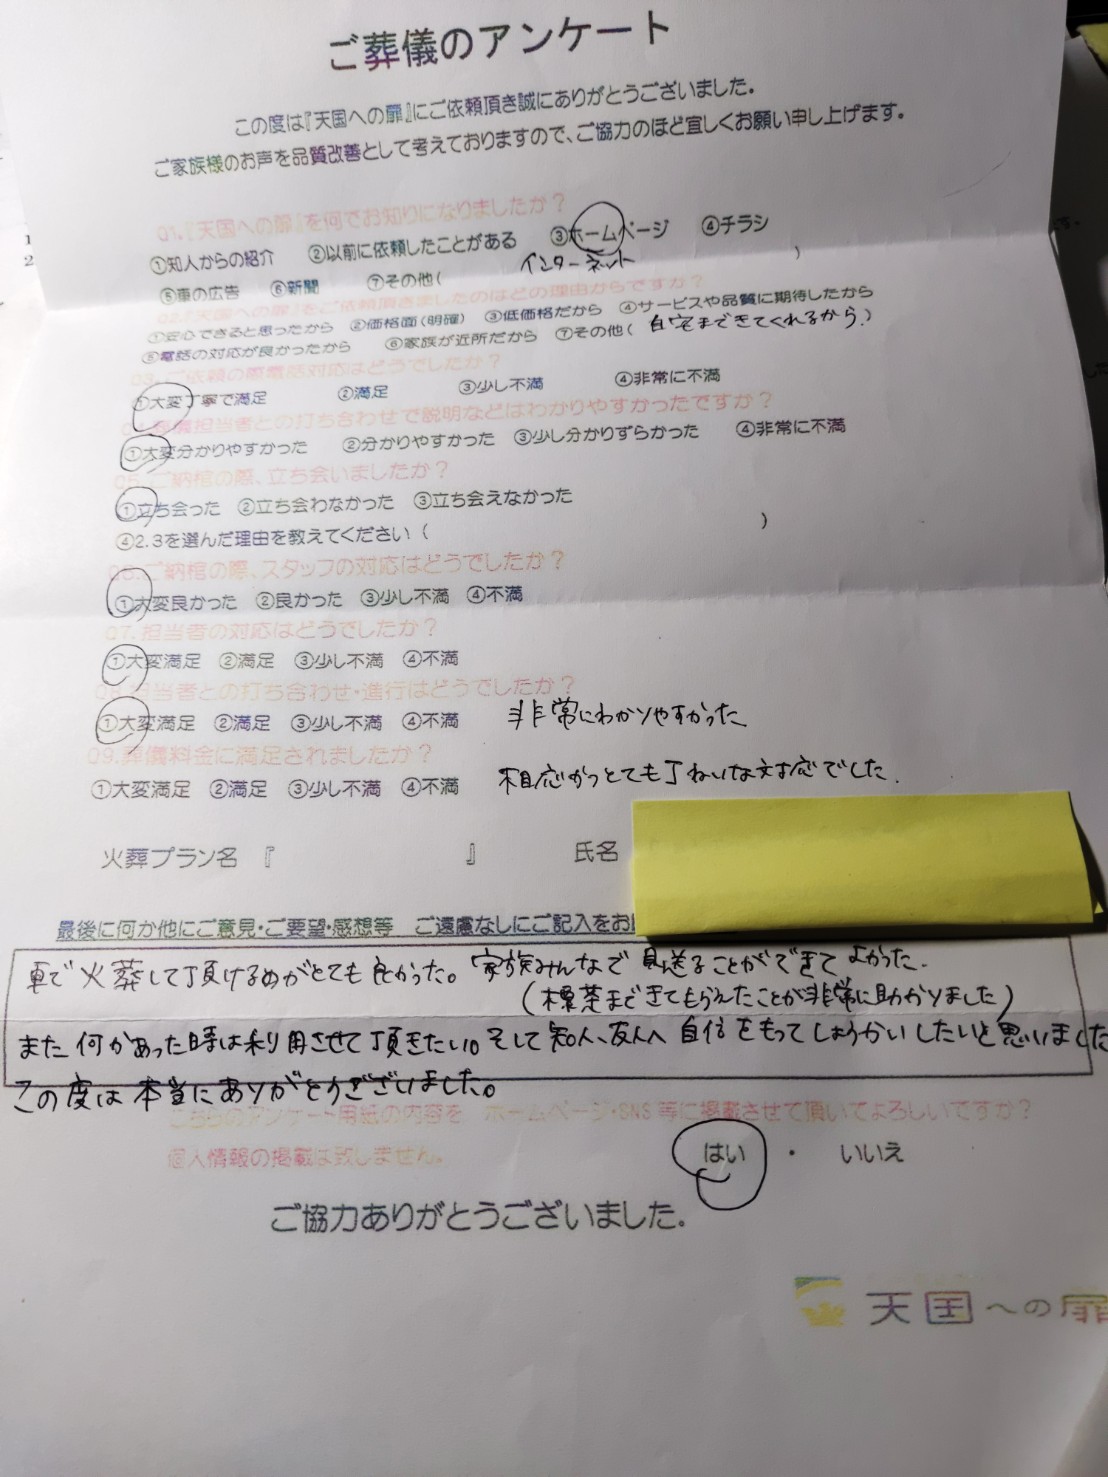 ご葬儀のアンケート
この度は『天国への扉』にご依頼頂き誠にありがとうございました。
ご家族様のお声を品質改善として考えておりますので、ご協力のほど宜しくお願い申し上げます。
01.『天国への扉』を何でお知りになりましたか？
①知人からの紹介 ②以前に依頼したことがある ③ホームページ ④チラシ
インターネット
⑤車の広告 ⑥新聞 ⑦その他( )
02.『天国への扉』をご依頼頂きましたのはどの理由からですか？
①安心できると思ったから ②価格面(明確) ③低価格だから ④サービスや品質に期待したから
⑤電話の対応が良かったから ⑥家族が近所だから ⑦その他( 自宅まできてくれるから)
03.ご依頼の際電話対応はどうでしたか？
①大変丁寧で満足 ②満足 ③少し不満 ④非常に不満
葬儀担当者との打ち合わせで説明などはわかりやすかったですか？
①大変分かりやすかった ②分かりやすかった ③少し分かりずらかった ④非常に不満
05.ご納棺の際、立ち会いましたか？
①立ち会った ②立ち会わなかった ③立ち会えなかった
④2.3を選んだ理由を教えてください( )
ご納棺の際、スタッフの対応はどうでしたか？
①大変良かった ②良かった ③少し不満 ④不満
07.担当者の対応はどうでしたか？
①大変満足 ②満足 ③少し不満 ④不満
担当者との打ち合わせ・進行はどうでしたか？
①大変満足 ②満足 ③少し不満 ④不満 非常にわかりやすかった
09.葬儀料金に満足されましたか？
①大変満足 ②満足 ③少し不満 ④不満 相応かつとても丁ねいな対応でした.
火葬プラン名『 』 氏名
最後に何か他にご意見・ご要望・感想等 ご遠慮なしにご記入をお
車で火葬して頂けるのがとても良かった。家族みんなで見送ることができてよかった.
まできてもらえたことが非常に助かりました)
また何かあった時は利用させて頂きたい。そして知人、友人へ自信をもってしょうかいしたいと思いました
この度は本当にありがとうございました。
こちらのアンケート用紙の内容を ホームページ・SNS等に掲載させて頂いてよろしいですか？
個人情報の掲載は致しません。 はい ・ いいえ
ご協力ありがとうございました。
天国への扉